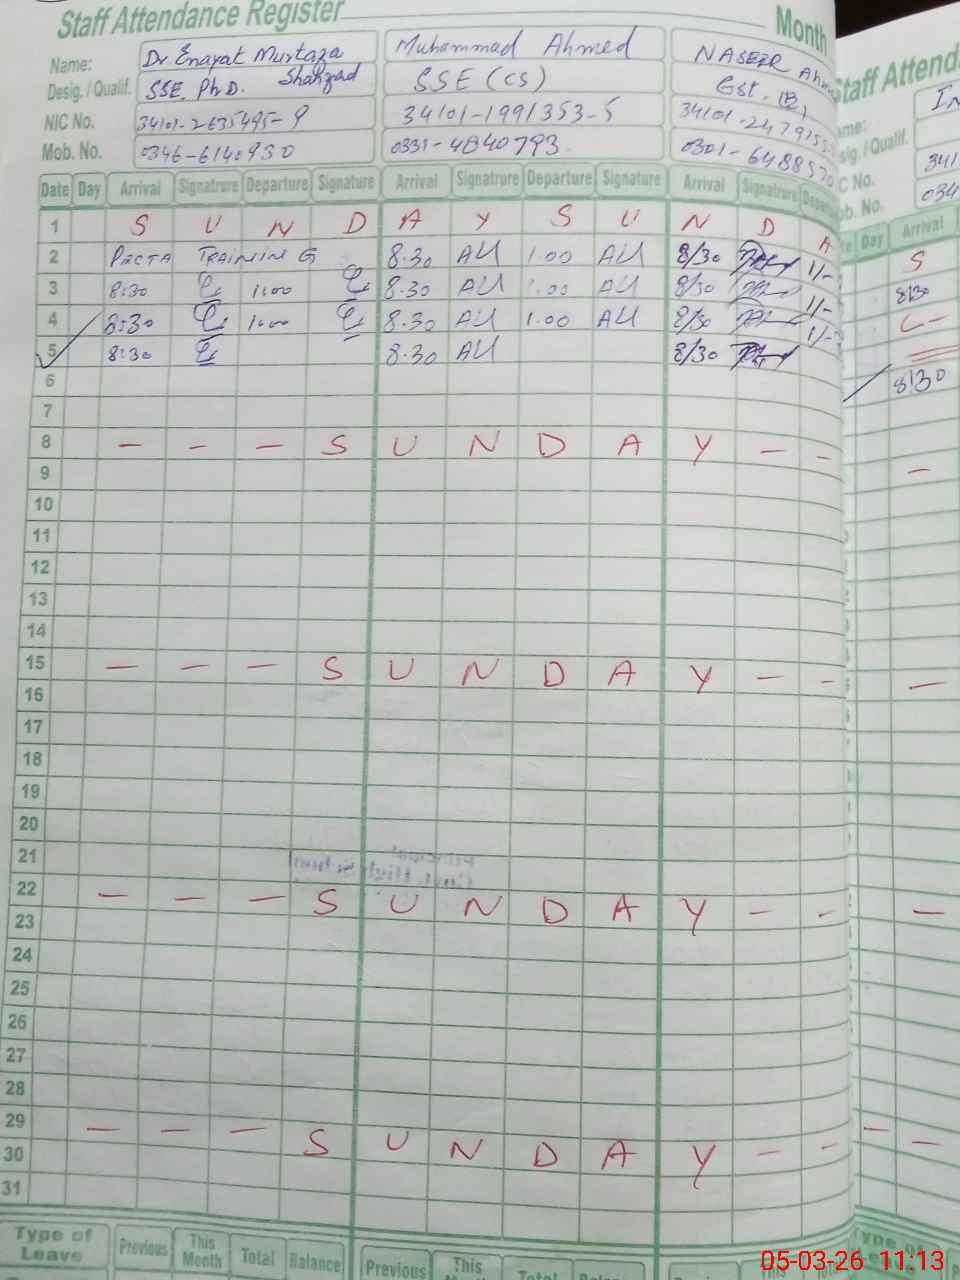 Staff Attendance Register
Month
Name: Dr. Enayat Murtaza Shahzad Muhammad Ahmed NASEER
Desig. / Qualif. SSE. Ph.D. SSE (CS) Est. (B)
NIC No. 34101-2635495-9 34101-1991353-5
Mob. No. 0346-6140930 0331-4840793. 0301-6488570
Date Day Arrival Signatrure Departure Signature Arrival Signatrure Departure Signature Arrival Signatrure
1 S U N D A Y S U N D A
2 PECTA TRAINING 8.30 AU 1.00 AU 8/30 1/-
3 8:30 1:00 8.30 AU 1.00 AU 8/30 1/-
4 8:30 1:00 8.30 AU 1.00 AU 8/30 1/-
5 8:30 8.30 AU 8/30
6
7
8 - - - S U N D A Y - -
9
10
11
12
13
14
15 - - - S U N D A Y - -
16
17
18
19
20
21
22 - - - S U N D A Y - -
23
24
25
26
27
28
29 - - - S U N D A Y - -
30
31
Type of Leave Previous This Month Total Balance Previous This Total
Staff Attend
Day Arrival
S
8:30
8:30
05-03-26 11:13